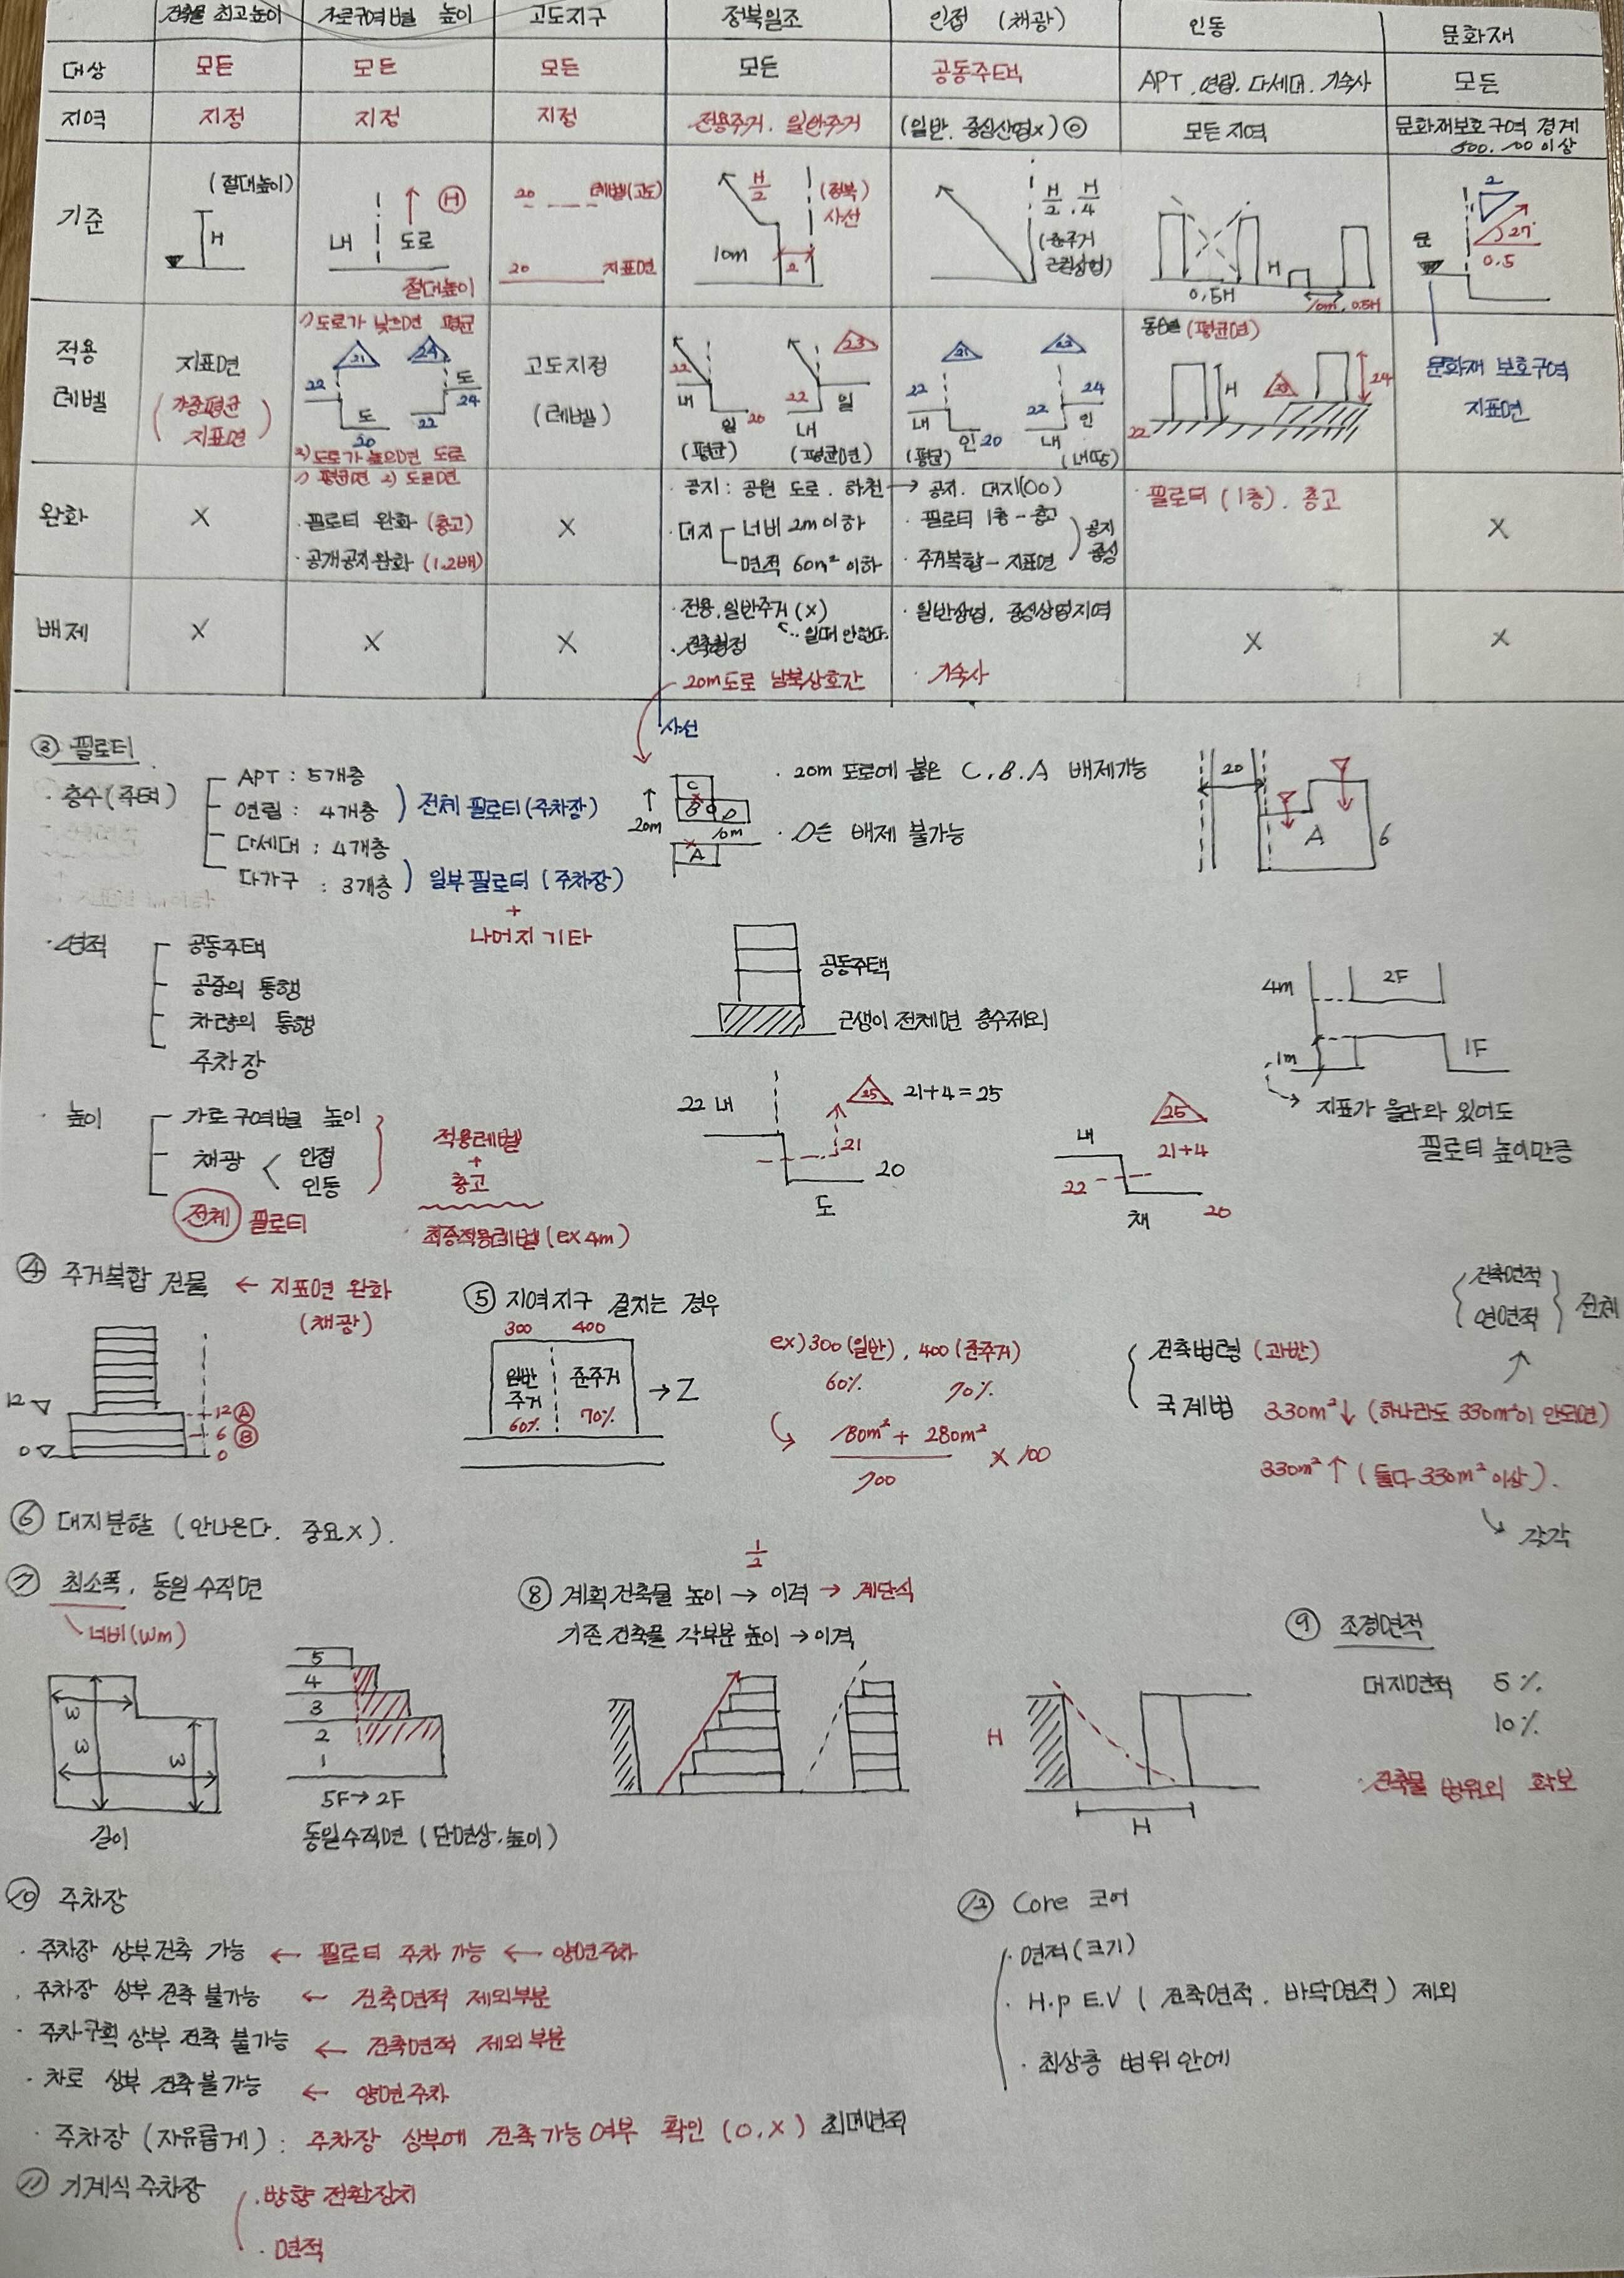 건축물 최고높이 가로구역별 높이 고도지구 정북일조 인접 (채광) 인동 문화재
대상 모든 모든 모든 모든 공동주택 APT. 연립. 다세대. 기숙사 모든
지역 지정 지정 지정 전용주거. 일반주거 (일반. 중심상업x) ◎ 모든지역 문화재보호구역 경계
500. 100 이상
기준
(절대높이)
H
내 도로
Ⓗ
절대높이
20 레벨(고도)
20 지표면
H/2 (정북)
사선
10m
2
H/2, H/4
(준주거
근린상업)
0.5H
H
10m, 0.5H
2
문
27°
0.5
적용
레벨
지표면
(가중평균
지표면)
1) 도로가 낮으면 평균
21 24
22 도
도 24
20 22
2) 도로가 높으면 도로
고도지정
(레벨)
23
22
내 일 20
22 일
내
(평균) (평균면)
21 23
22 24
내 인 20
22 인
내
(평균) (내땅)
(평균면)
H 23 24
22
문화재 보호구역
지표면
완화
X
1) 평균면 2) 도로면
· 필로티 완화 (층고)
· 공개공지완화 (1.2배)
X
· 공지 : 공원 도로. 하천 → 공지. 대지(OO)
· 대지 너비 2m이하
면적 60m² 이하
· 필로티 1층 - 층고
· 주거복합 - 지표면
공지
중심
· 필로티 (1층). 층고
X
배제
X
X
X
· 전용. 일반주거 (x)
일때 안한다.
· 20m도로 남북상호간
· 일반상업, 중심상업지역
· 기숙사
X
X
사선
③ 필로티
· 층수(주택)
APT : 5개층
연립 : 4개층
다세대 : 4개층
다가구 : 3개층
전체 필로티(주차장)
일부필로티 (주차장)
+
나머지 기타
C
B D
20m 10m
A
· 20m 도로에 붙은 C. B. A 배제가능
· D는 배제 불가능
20
A 6
· 면적
공동주택
공중의 통행
차량의 통행
주차장
공동주택
근생이 전체면 층수제외
4m 2F
1m 1F
지표가 올라와 있어도
필로티 높이만큼
· 높이
가로구역별 높이
채광 < 인접
인동
전체 필로티
적용레벨
+
층고
최종적용레벨(ex 4m)
22 내
25 21+4=25
21
20
도
25
내 21+4
22
채 20
④ 주거복합 건물 ← 지표면 완화
(채광)
12
12 Ⓐ
6 Ⓑ
0 0
⑤ 지역지구 걸치는 경우
300 400
일반
주거
60%
준주거
70%
→ Z
ex) 300 (일반), 400 (준주거)
60% 70%
180m² + 280m²
700
x 100
건축면적
연면적
전체
건축법령 (과반)
국계법 330m²↓ (하나라도 330m²이 안되면)
330m²↑ (둘다 330m² 이상).
각각
⑥ 대지분할 (안나온다. 중요x).
⑦ 최소폭, 동일 수직면
너비(Wm)
W
W
W
길이
5
4
3
2
1
5F→2F
동일수직면 (단면상.높이)
1/2
⑧ 계획건축물 높이 → 이격 → 계단식
기존 건축물 각부분 높이 → 이격
H
H
⑨ 조경면적
대지면적 5%
10%
· 건축물 범위외 확보
⑩ 주차장
· 주차장 상부건축 가능 ← 필로티 주차 가능 ← 양면주차
· 주차장 상부 건축 불가능 ← 건축면적 제외부분
· 주차구획 상부 건축 불가능 ← 건축면적 제외부분
· 차로 상부 건축불가능 ← 양면주차
· 주차장 (자유롭게) : 주차장 상부에 건축가능여부 확인 (O.X) 최대면적
⑪ 기계식주차장
· 방향 전환장치
· 면적
⑫ Core 코어
· 면적(크기)
· H.p E.V ( 건축면적. 바닥면적 ) 제외
· 최상층 범위안에